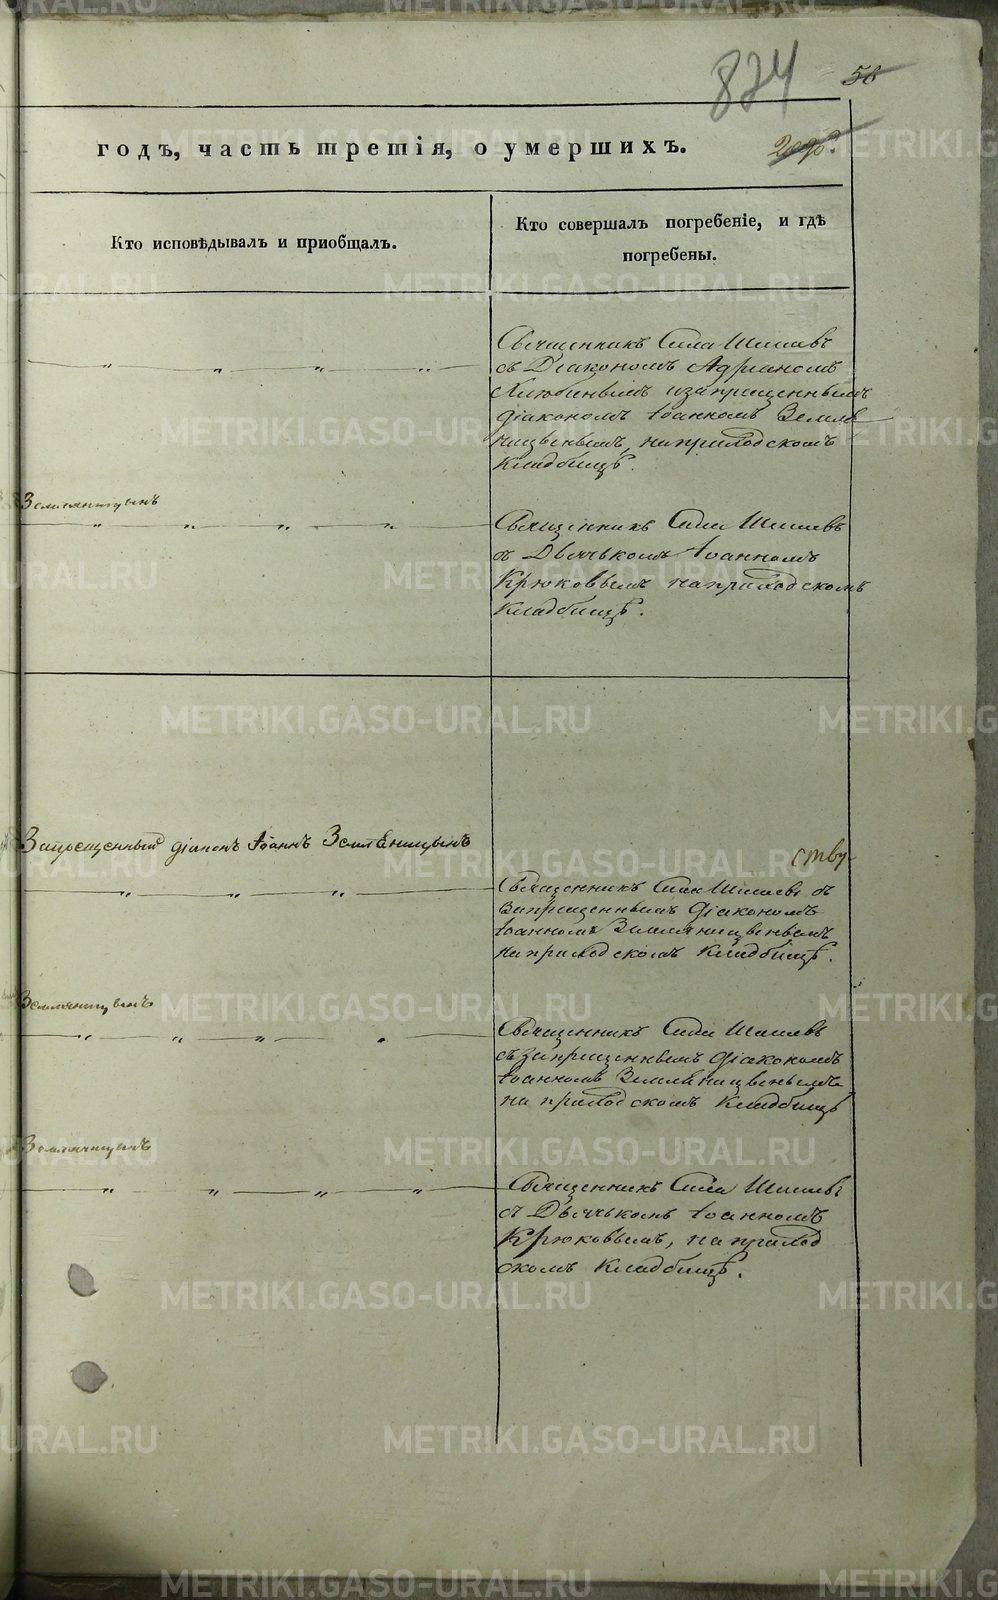 824
58
годъ, часть третія, о умершихъ.
Кто исповѣдывалъ и приобщалъ.
Кто совершалъ погребеніе, и гдѣ
погребены.
Священникъ Сила
съ Діакономъ Адріаномъ
изапрещеннымъ
діакономъ Іоанномъ Земля
ницынымъ, наприходскомъ
Кладбищѣ.
Земляницынъ
Священникъ Сила
съ Дьячькомъ Іоанномъ
Крюковымъ наприходскомъ
Кладбищѣ.
Запрещенный діаконъ Іоаннъ Земляницынъ
ству
Священникъ Сила съ
Запрещеннымъ Діакономъ
Іоанномъ Земляницынымъ
наприходскомъ Кладбищѣ.
Земляницынъ
Священникъ Сила
съ запрещеннымъ Діакономъ
Іоанномъ Земляницынымъ
на приходскомъ Кладбищѣ
Земляницынъ
Священникъ Сила
съ Дьячькомъ Іоанномъ
Крюковымъ, на приход
скомъ Кладбищѣ.
METRIKI.GASO-URAL.RU